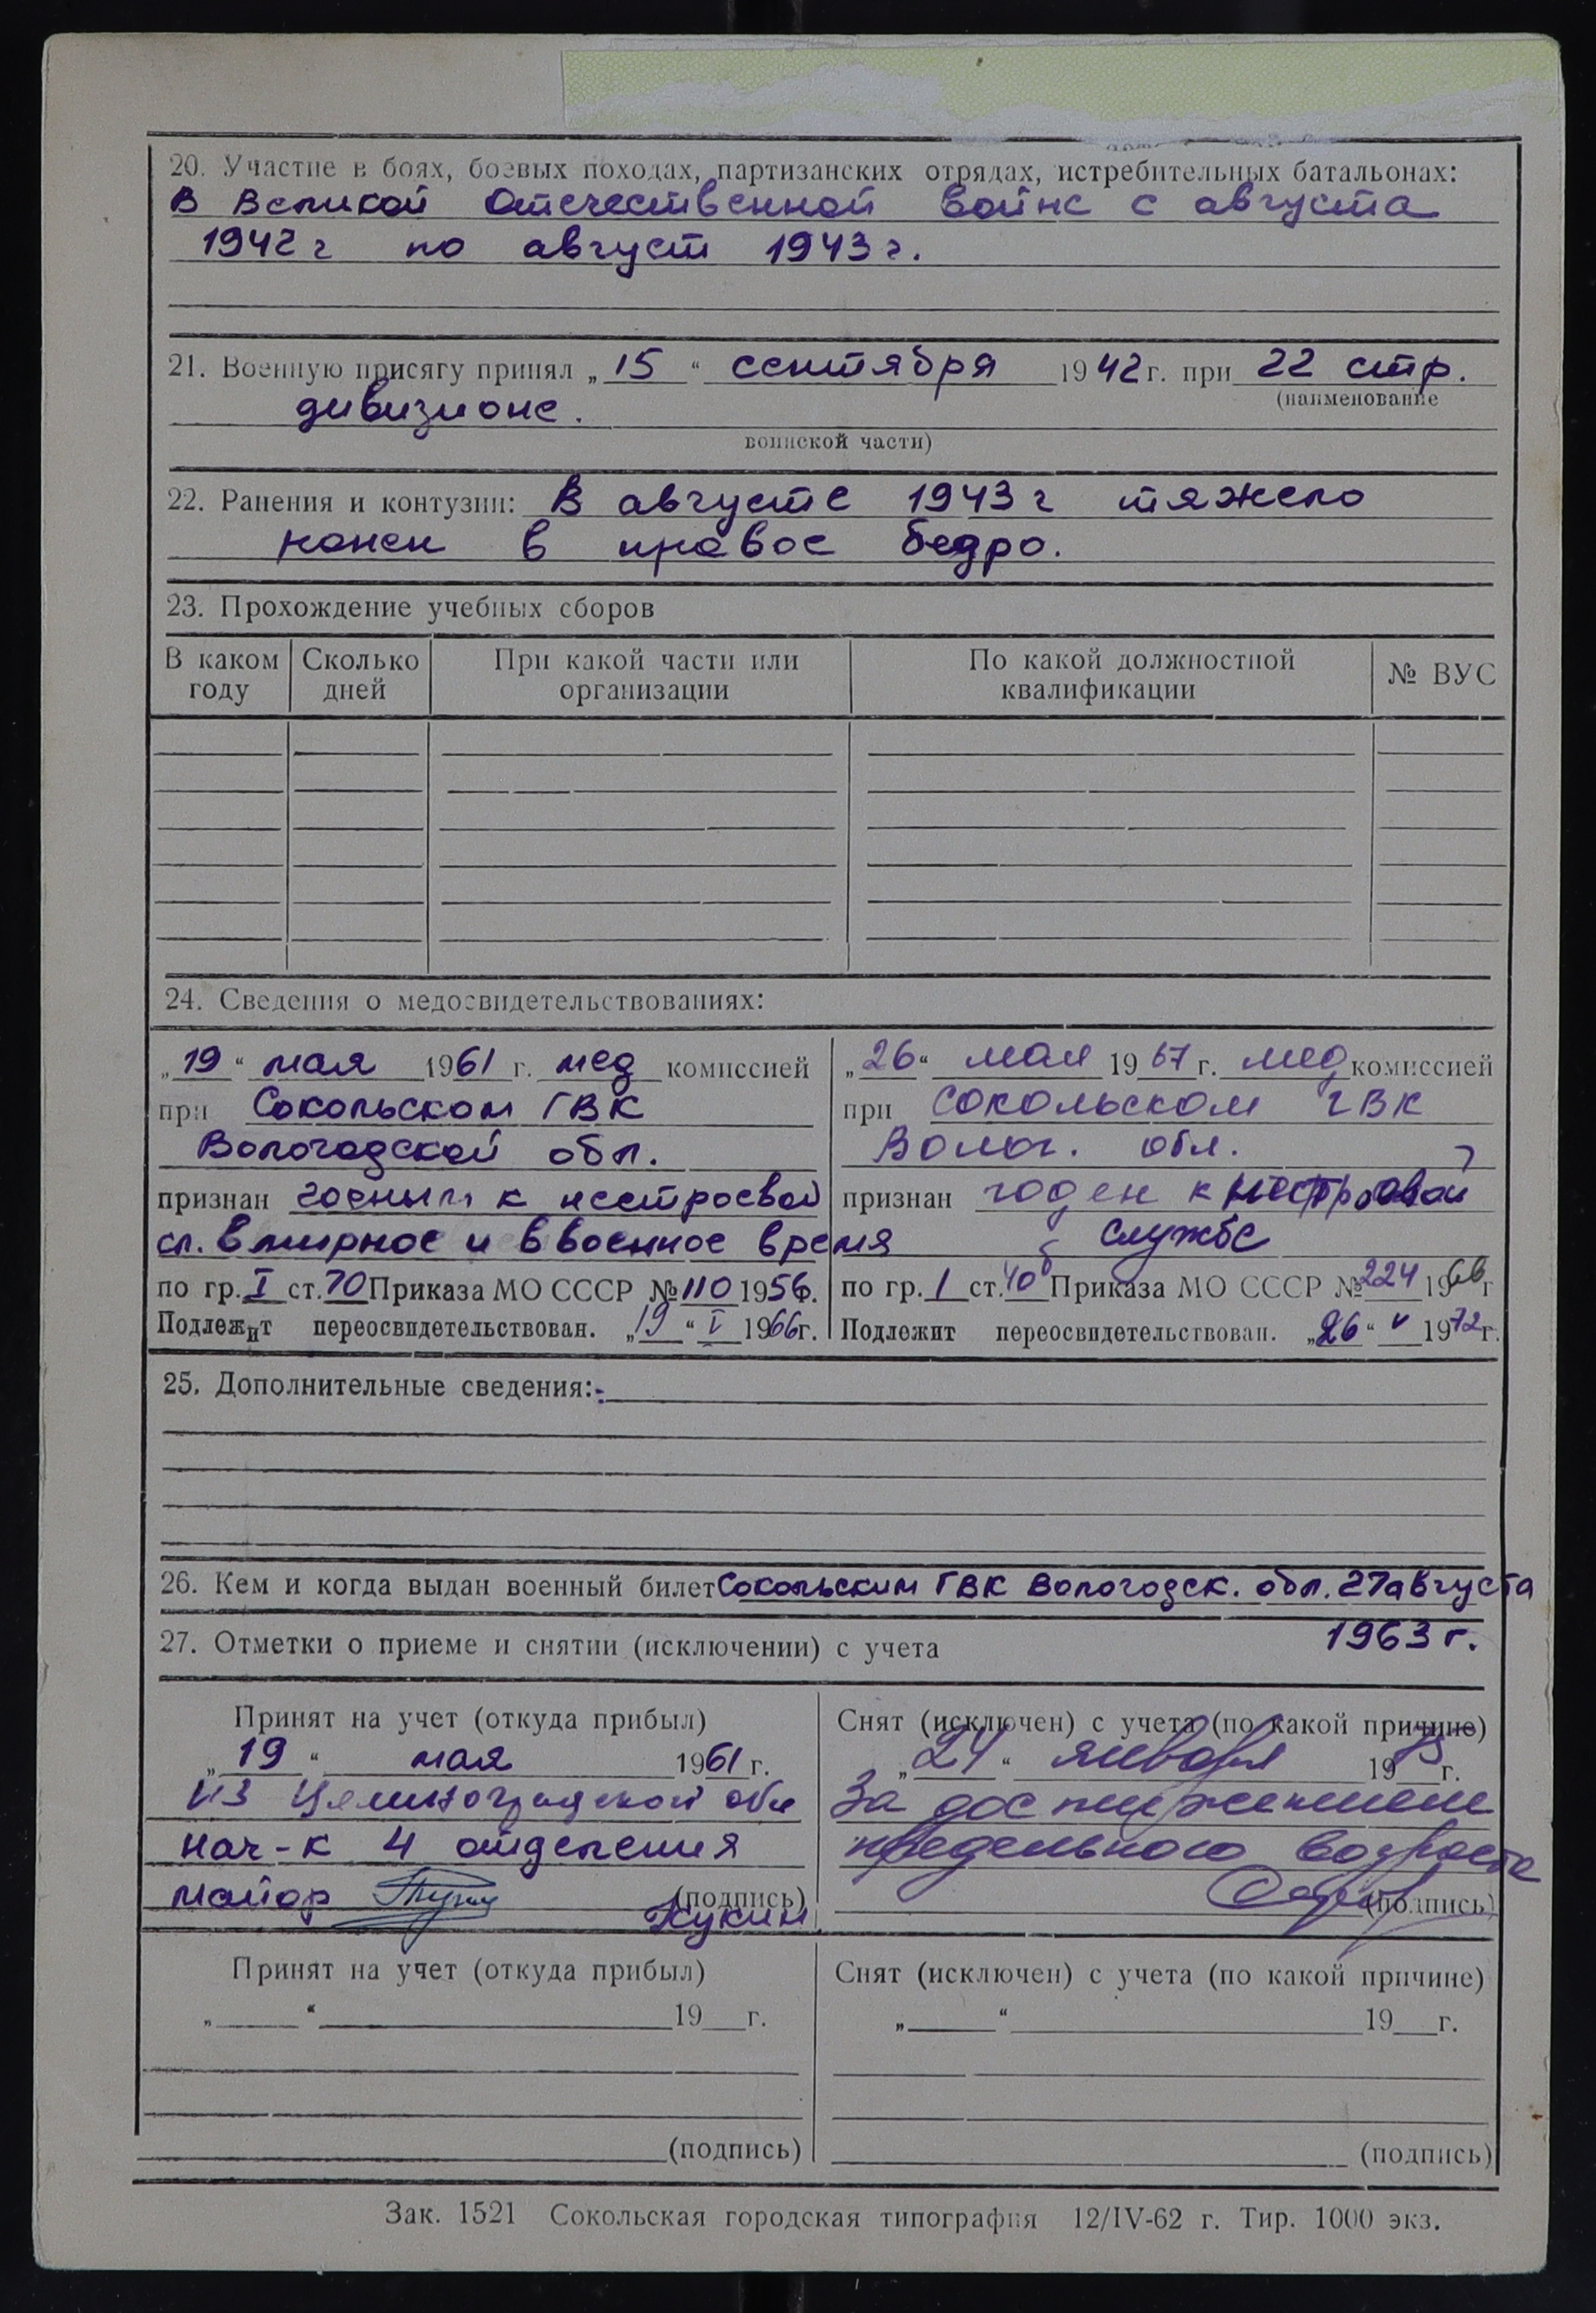 20. Участие в боях, боевых походах, партизанских отрядах, истребительных батальонах:
В Великой Отечественной войне с августа
1942 г по август 1943 г.
21. Военную присягу принял „15“ сентября 1942 г. при 22 стр.
(наименование
дивизионе.
воинской части)
22. Ранения и контузии: В августе 1943 г тяжело
ранен в правое бедро.
23. Прохождение учебных сборов
В каком году
Сколько дней
При какой части или организации
По какой должностной квалификации
№ ВУС
24. Сведения о медосвидетельствованиях:
„19“ мая 1961 г. мед комиссией
при Сокольском ГВК
Вологодской обл.
признан годным к нестроевой
сл. в мирное и в военное время
по гр. I ст. 70 Приказа МО СССР № 110 1956.
Подлежит переосвидетельствован. „19“ V 1966 г.
„26“ мая 1967 г. мед комиссией
при Сокольском ГВК
Волог. обл.
признан годен к нестроевой
службе
по гр. 1 ст. 40б Приказа МО СССР № 224 1966 г
Подлежит переосвидетельствован. „26“ V 1972 г.
25. Дополнительные сведения:
26. Кем и когда выдан военный билет Сокольским ГВК Вологодск. обл. 27 августа
1963 г.
27. Отметки о приеме и снятии (исключении) с учета
Принят на учет (откуда прибыл)
„19“ мая 1961 г.
из Целиноградской обл
нач-к 4 отделения
майор (подпись)
Кукин
Снят (исключен) с учета (по какой причине)
„24“ января 1973 г.
За достижением
предельного возраста
(подпись)
Принят на учет (откуда прибыл)
„ “ 19 г.
(подпись)
Снят (исключен) с учета (по какой причине)
„ “ 19 г.
(подпись)
Зак. 1521 Сокольская городская типография 12/IV-62 г. Тир. 1000 экз.